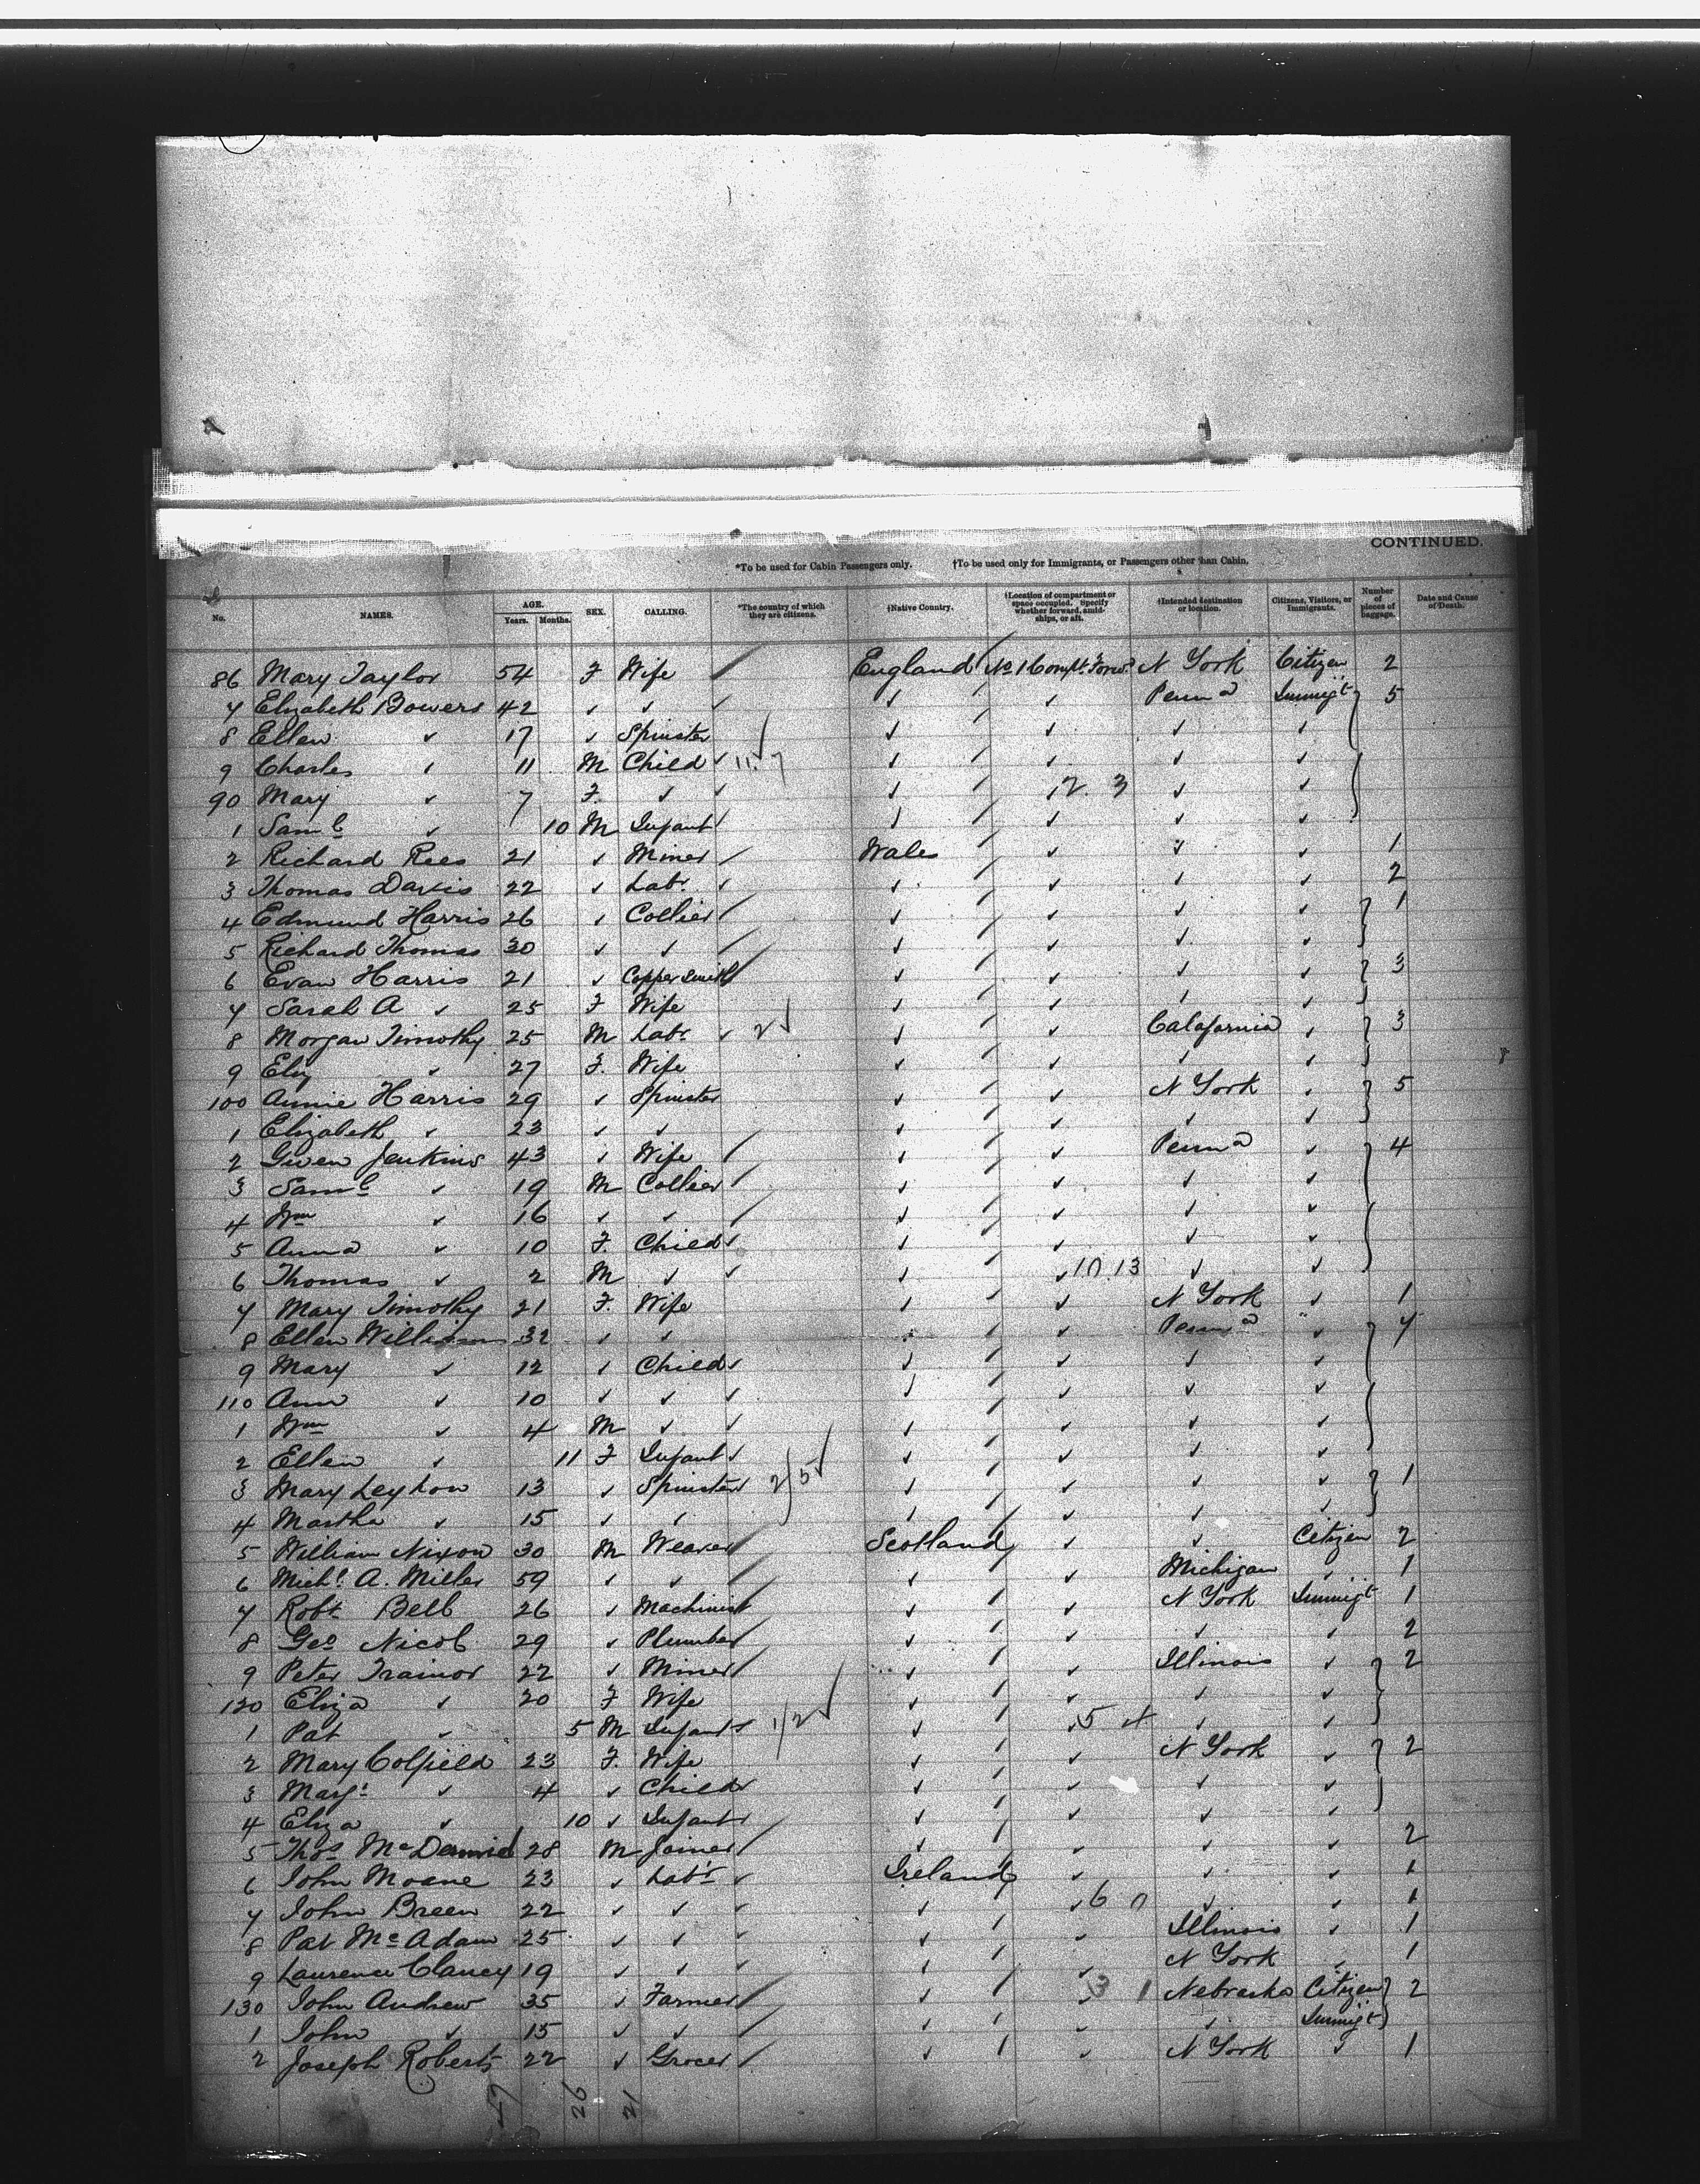 CONTINUED.
*To be used for Cabin Passengers only. †To be used only for Immigrants, or Passengers other than Cabin.
No. NAMES. AGE. Years. Months. SEX. CALLING. *The country of which they are citizens. †Native Country. †Location of compartment or space occupied. Specify whether forward, amidships, or aft. †Intended destination or location. Citizens, Visitors, or Immigrants. Number of pieces of baggage. Date and Cause of Death.
86 Mary Taylor 54 F Wife England No 1 Compt. Forwd N York Citizen 2
7 Elizabeth Bowers 42 ✓ ✓ ✓ ✓ Penna Immigt 5
8 Ellen ✓ 17 ✓ Spinster ✓ ✓ ✓ ✓
9 Charles ✓ 11 M Child 11. 7 ✓ ✓ ✓ ✓
90 Mary ✓ 7 F. ✓ ✓ ✓ 2. 3 ✓ ✓
1 Saml ✓ 10 M Infant ✓ ✓ ✓ ✓
2 Richard Rees 21 ✓ Miner Wales ✓ ✓ ✓ 1
3 Thomas Davis 22 ✓ Labr ✓ ✓ ✓ ✓ 2
4 Edmund Harris 26 ✓ Collier ✓ ✓ ✓ ✓ 1
5 Richard Thomas 30 ✓ ✓ ✓ ✓ ✓ ✓
6 Evan Harris 21 ✓ Copper Smith ✓ ✓ ✓ ✓ 3
7 Sarah A ✓ 25 F Wife ✓ ✓ ✓ ✓
8 Morgan Timothy 25 M Labr 2 ✓ ✓ Calafornia ✓ 3
9 Eliz ✓ 27 F. Wife ✓ ✓ ✓ ✓
100 Annie Harris 29 ✓ Spinster ✓ ✓ N York ✓ 5
1 Elizabeth ✓ 23 ✓ ✓ ✓ ✓ ✓ ✓
2 Gwen Jenkins 43 ✓ Wife ✓ ✓ Penna ✓ 4
3 Saml ✓ 19 M Collier ✓ ✓ ✓ ✓
4 Wm ✓ 16 ✓ ✓ ✓ ✓ ✓ ✓
5 Anna ✓ 10 F. Child ✓ ✓ ✓ ✓
6 Thomas ✓ 2 M ✓ ✓ ✓ 10. 13 ✓ ✓
7 Mary Timothy 21 F. Wife ✓ ✓ N York ✓ 1
8 Ellen Williams 32 ✓ ✓ ✓ ✓ Penna ✓ 7
9 Mary ✓ 12 ✓ Child ✓ ✓ ✓ ✓
110 Ann ✓ 10 ✓ ✓ ✓ ✓ ✓ ✓
1 Wm ✓ 4 M ✓ ✓ ✓ ✓ ✓
2 Ellen ✓ 11 F Infant ✓ ✓ ✓ ✓
3 Mary Leyhon 13 ✓ Spinster 2 5 ✓ ✓ ✓ ✓ 1
4 Martha ✓ 15 ✓ ✓ ✓ ✓ ✓ ✓
5 William Nixon 30 M Weaver Scotland ✓ ✓ Citizen 2
6 Michl. A. Miller 59 ✓ ✓ ✓ ✓ Michigan ✓ 1
7 Robt Bell 26 ✓ Machinist ✓ ✓ N York Immigt 1
8 Geo Nicol 29 ✓ Plumber ✓ ✓ ✓ ✓ 2
9 Peter Trainor 22 ✓ Miner ✓ ✓ Illinois ✓ 2
120 Eliza ✓ 20 F Wife ✓ ✓ ✓ ✓
1 Pat ✓ 5 M Infant 1/2 ✓ 5 4 ✓ ✓
2 Mary Colfield 23 F. Wife ✓ ✓ N York ✓ 2
3 Margt ✓ 4 ✓ Child ✓ ✓ ✓ ✓
4 Eliza ✓ 10 ✓ Infant ✓ ✓ ✓ ✓
5 Thos McDermid 28 M Joiner ✓ ✓ ✓ ✓ 2
6 John Moane 23 ✓ Labr Ireland ✓ ✓ ✓ 1
7 John Breen 22 ✓ ✓ ✓ ✓ 6 0 ✓ ✓ 1
8 Pat McAdam 25 ✓ ✓ ✓ ✓ Illinois ✓ 1
9 Laurence Clancy 19 ✓ ✓ ✓ ✓ N York ✓ 1
130 John Andrew 35 ✓ Farmer ✓ ✓ 3 1 Nebraska Citizen 2
1 John ✓ 15 ✓ ✓ ✓ ✓ ✓ Immigt
2 Joseph Roberts 22 ✓ Grocer ✓ ✓ N York ✓ 1
26 21